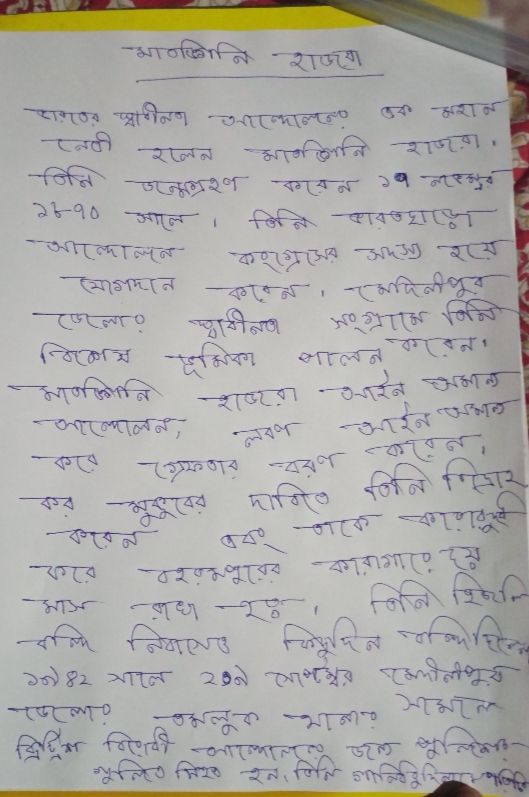 মাতঙ্গিনি হাজরা
ভারতের স্বাধীনতা আন্দোলনের এক মহান
নেত্রী হলেন মাতঙ্গিনি হাজরা।
তিনি জন্মগ্রহণ করেন ১৭ নভেম্বর
১৮৭০ সালে। তিনি ভারতছাড়ো
আন্দোলন কংগ্রেসের সদস্য হয়ে
যোগদান করেন। মেদিনীপুর
জেলার স্বাধীনতা সংগ্রামে তিনি
বিশেষ ভূমিকা পালন করেন।
মাতঙ্গিনি হাজরা আইন অমান্য
আন্দোলন, লবণ আইন অমান্য
করে গ্রেফতার বরণ করেন।
কর মুকুবের দাবিতে তিনি বিদ্রোহ
করেন এবং তাকে কারারুদ্ধ
করে বহরমপুরের কারাগারে ছয়
মাস রাখা হয়। তিনি হিজলি
বন্দি নিবাসেও কিছুদিন বন্দি ছিলেন
১৯৪২ সালে ২৯শে সেপ্টেম্বর মেদিনীপুর
জেলার তমলুক থানার সামনে
ব্রিটিশ বিরোধী আন্দোলনে পুলিশের
গুলিতে নিহত হন। তিনি